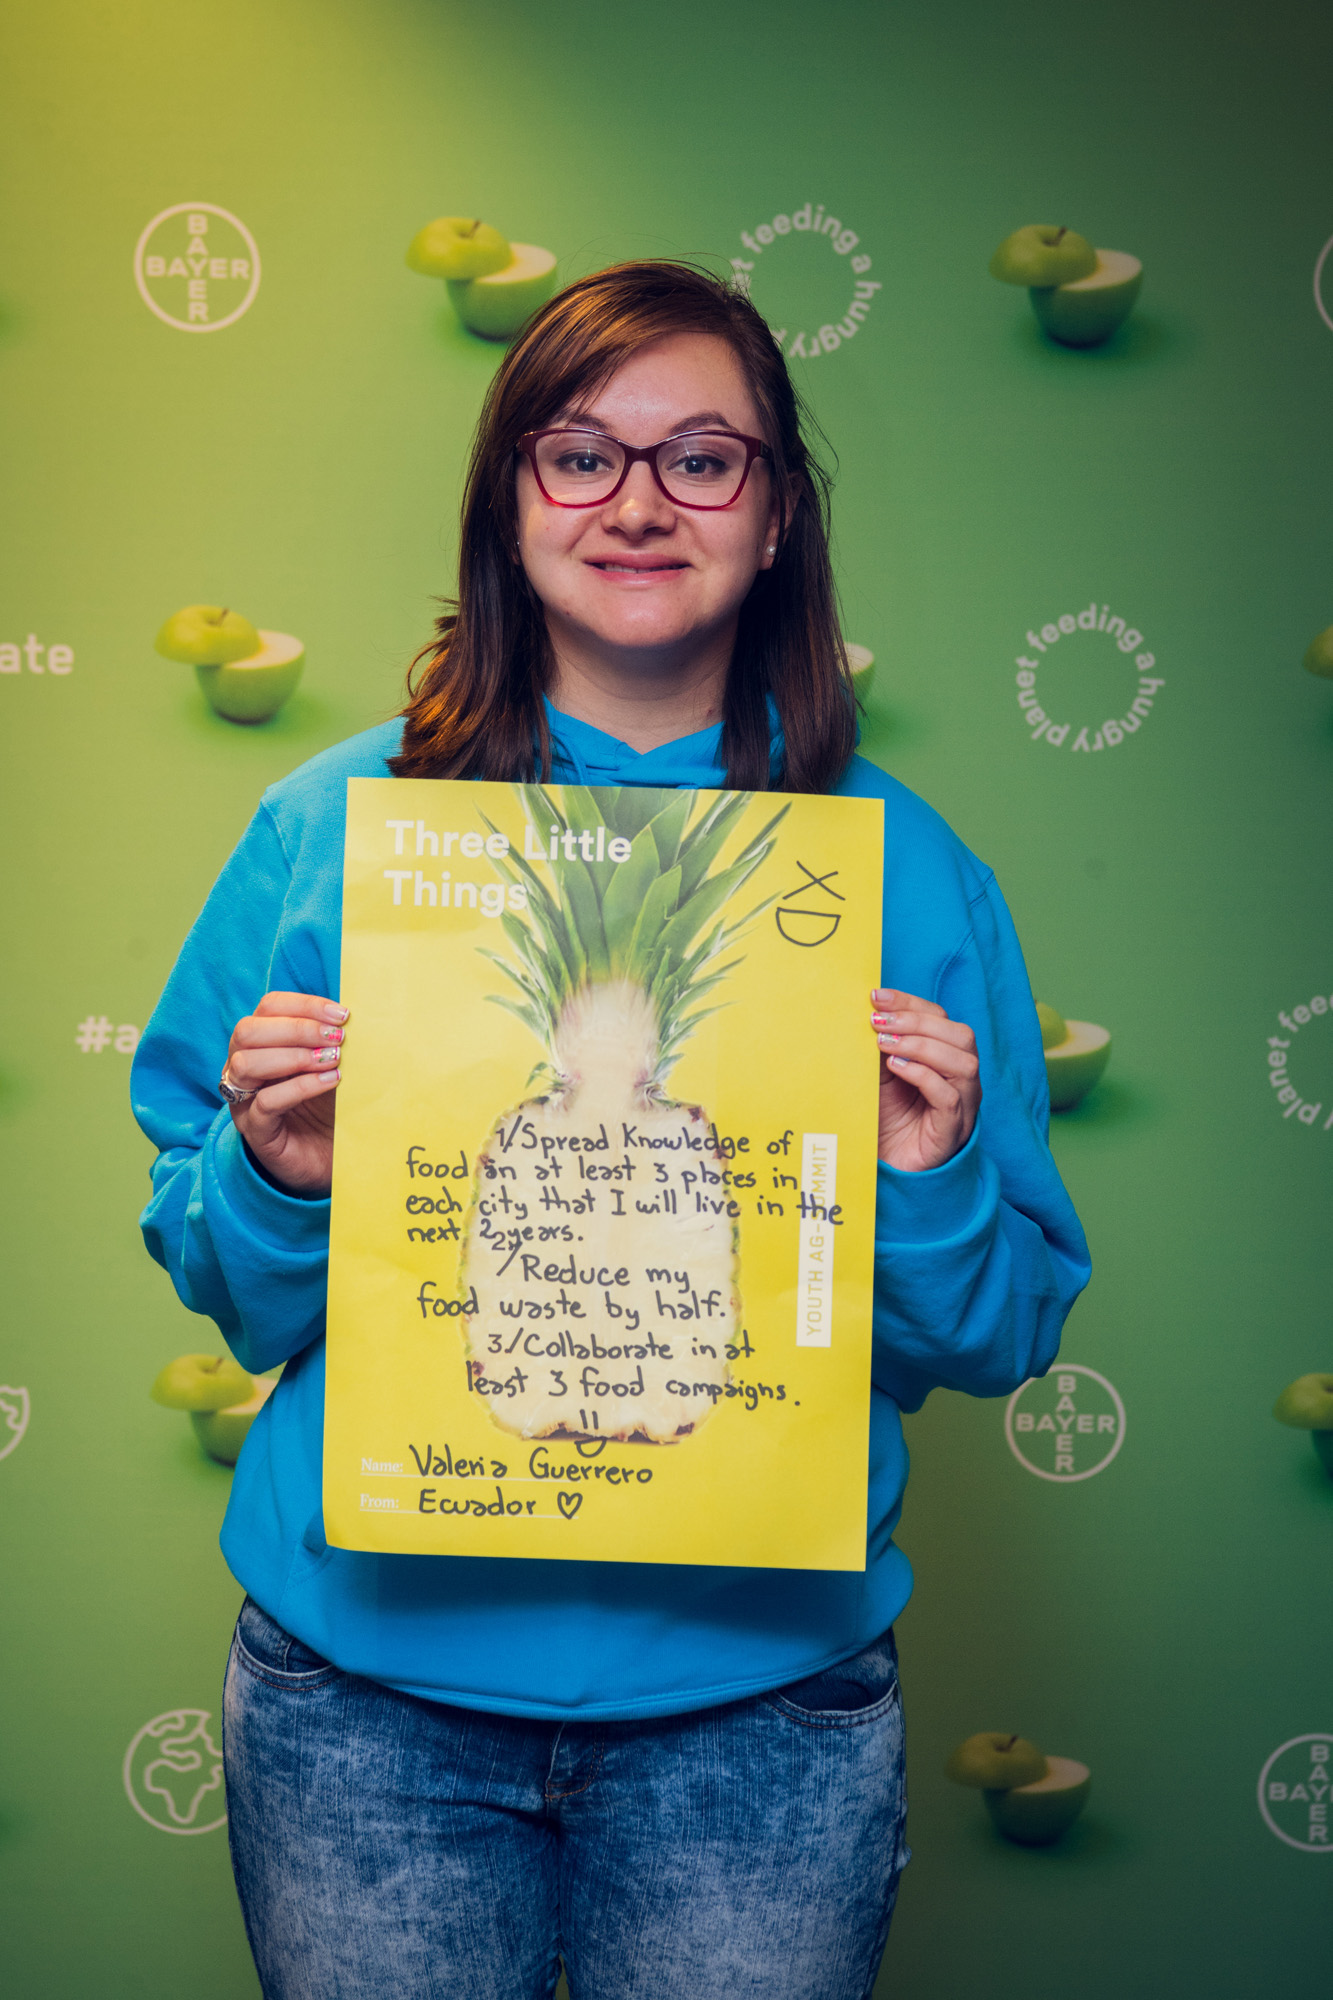 BAYER
BAYER
planet feeding a hungry
ate
feeding a hungry planet
#a
feeding
planet
Three Little
Things
XD
1/Spread Knowledge of
food in at least 3 places in
each city that I will live in the
next 2 years.
2/Reduce my
food waste by half.
3./Collaborate in at
least 3 food campaigns.
YOUTH AG-SUMMIT
Name: Valeria Guerrero
From: Ecuador ♡
BAYER
BAYER
BAYER
BAYER